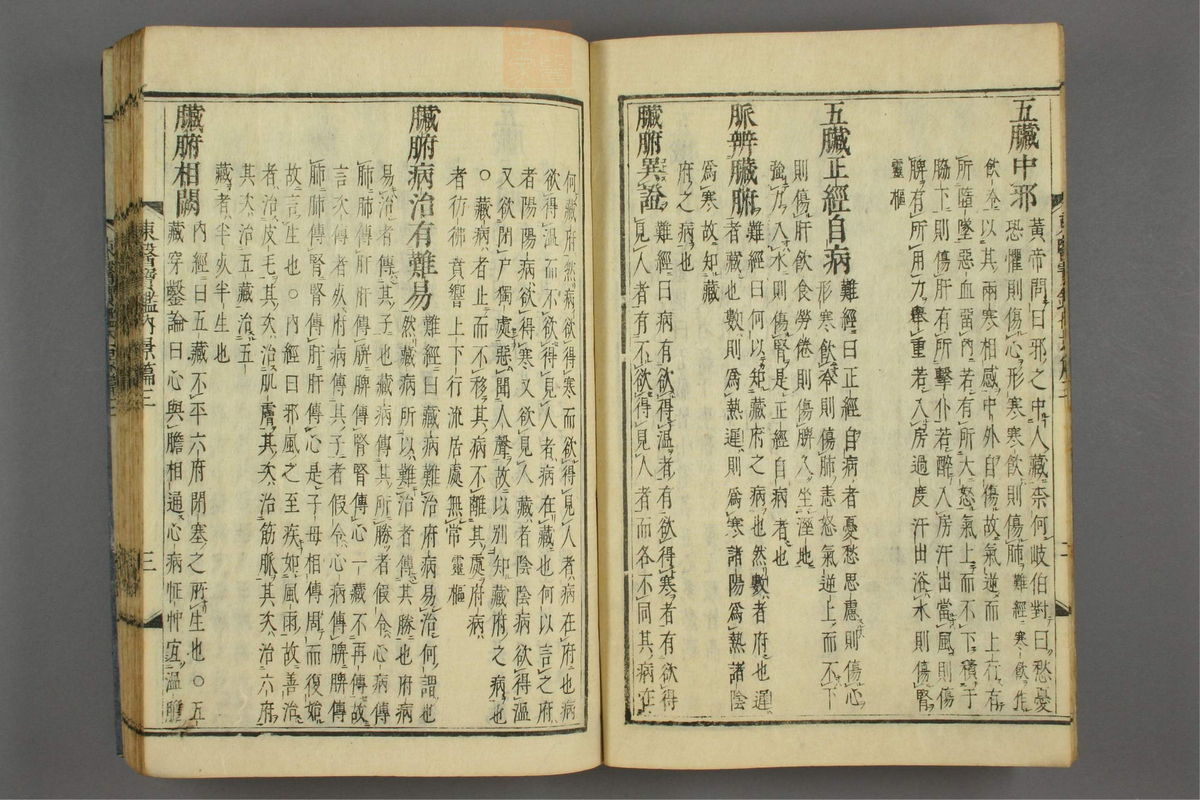 五臟中邪 黃帝問曰邪之中人藏柰何岐伯對曰愁憂
恐懼則傷心形寒寒飮則傷肺難經寒飮作
飮冷以其兩寒相感中外自傷故氣逆而上行有
所墮墜惡血留內若有所大怒氣上而不下積于
脇下則傷肝有所擊仆若醉入房汗出當風則傷
脾有所用力擧重若入房過度汗出浴水則傷腎
靈樞
五臟正經自病 難經曰正經自病者憂愁思慮則傷心
形寒飮冷則傷肺恚怒氣逆上而不下
則傷肝飮食勞倦則傷脾久坐溼地
強力入水則傷腎是正經自病者也
脈辨臟腑 難經曰何以知藏府之病也然數者府也遲
者藏也數則爲熱遲則爲寒諸陽爲熱諸陰
爲寒故知藏
府之病也
臟腑異證 難經曰病有欲得溫者有欲得寒者有欲得
見人者有不欲得見人者而各不同其病在
何藏府然病欲得寒而欲得見人者病在府也病
欲得溫而不欲得見人者病在藏也何以言之府
者陽陽病欲得寒又欲見人藏者陰陰病欲得溫
又欲閉戶獨處惡聞人聲故以別知藏府之病也
○藏病者止而不移其病不離其處府病
者彷彿賁響上下行流居處無常靈樞
臟腑病治有難易 難經曰藏病難治府病易治何謂也
然藏病所以難治者傳其勝也府病
易治者傳其子也藏病傳其所勝者假令心病傳
肺肺傳肝肝傳脾脾傳腎腎傳心一藏不再傳故
言次得者死府病傳其子者假令心病傳脾脾傳
肺肺傳腎腎傳肝肝傳心是子母相傳周而復始
故言生也○內經曰邪風之至疾如風雨故善治
者治皮毛其次治肌膚其次治筋脈其次治六府
其次治五藏治五
藏者半死半生也
臟腑相關 內經曰五藏不平六府閉塞之所生也○五
藏穿鑿論曰心與膽相通心病怔忡宜溫膽
東醫寶鑑內景篇三
三